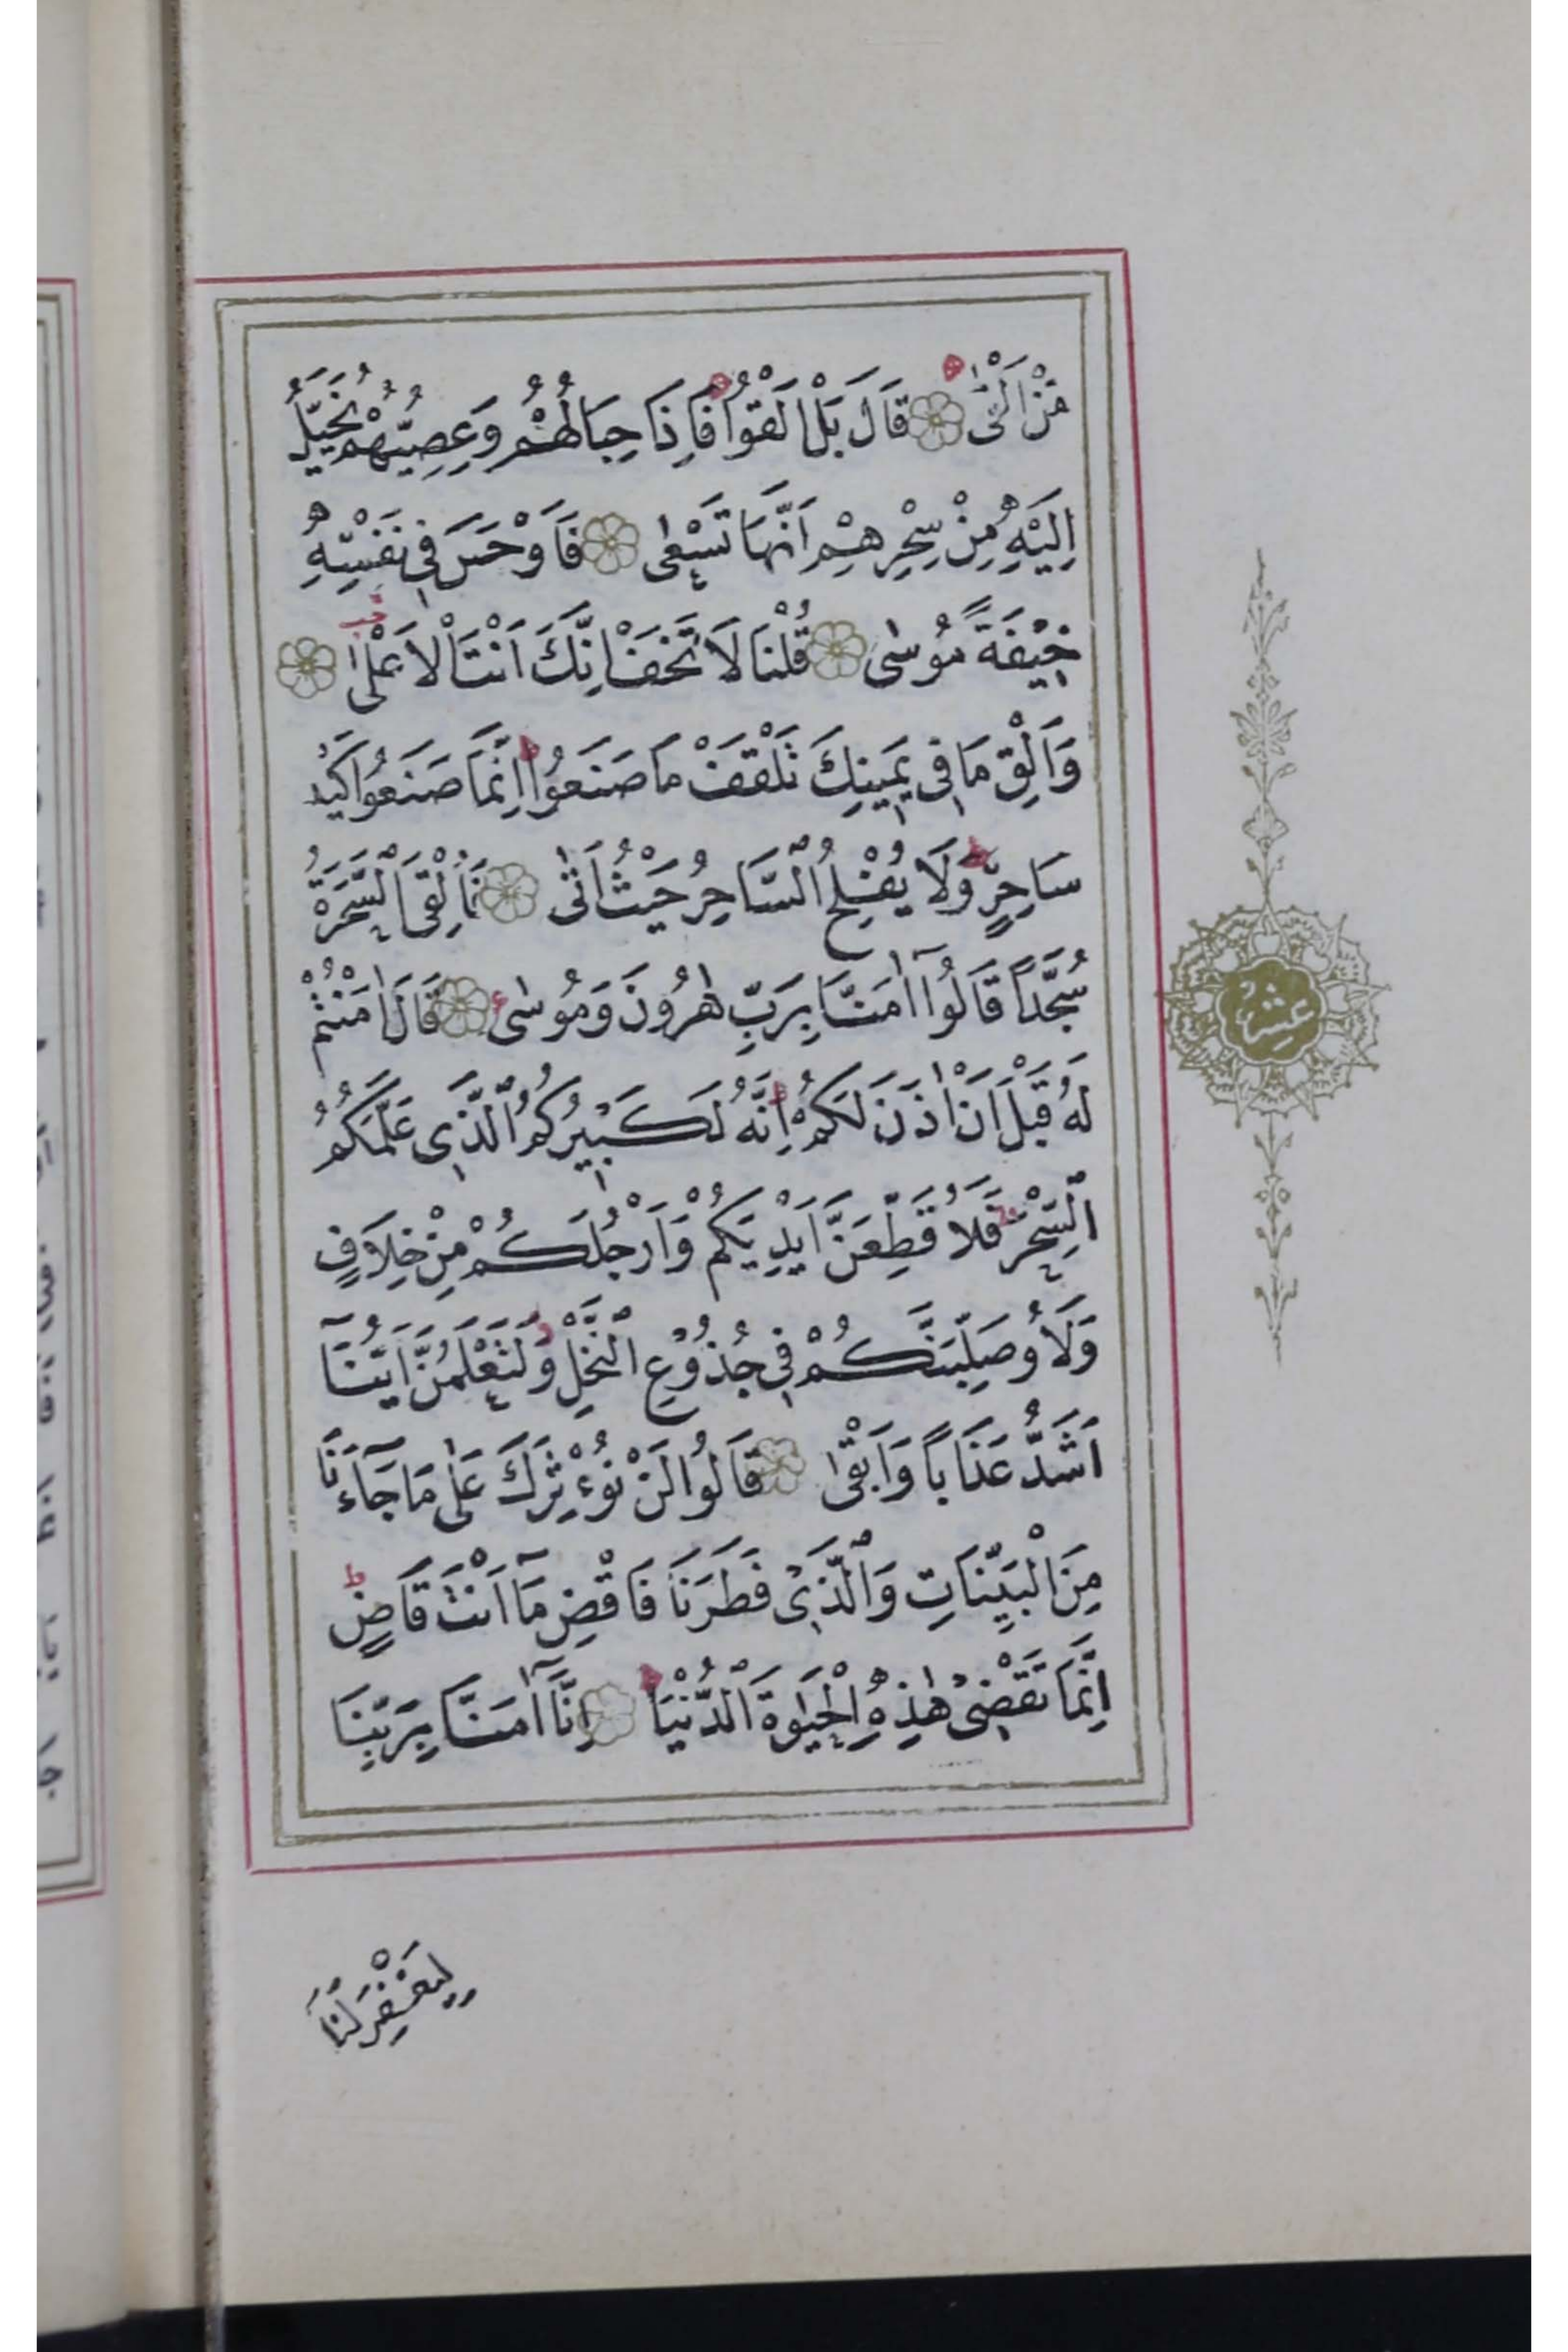 مَنْ اَلْقٰى قَالَ بَلْ اَلْقُوا فَاِذَا حِبَالُهُمْ وَعِصِيُّهُمْ يُخَيَّلُ
اِلَيْهِ مِنْ سِحْرِهِمْ اَنَّهَا تَسْعٰى فَاَوْجَسَ فِى نَفْسِهِ
خِيفَةً مُوسٰى قُلْنَا لَا تَخَفْ اِنَّكَ اَنْتَ الْاَعْلٰى
وَاَلْقِ مَا فِى يَمِينِكَ تَلْقَفْ مَا صَنَعُوا اِنَّمَا صَنَعُوا كَيْدُ
سَاحِرٍ وَلَا يُفْلِحُ السَّاحِرُ حَيْثُ اَتٰى فَاُلْقِىَ السَّحَرَةُ
سُجَّدًا قَالُوا اٰمَنَّا بِرَبِّ هٰرُونَ وَمُوسٰى قَالَ اٰمَنْتُمْ
لَهُ قَبْلَ اَنْ اٰذَنَ لَكُمْ اِنَّهُ لَكَبِيرُكُمُ الَّذِى عَلَّمَكُمُ
السِّحْرَ فَلَاُقَطِّعَنَّ اَيْدِيَكُمْ وَاَرْجُلَكُمْ مِنْ خِلَافٍ
وَلَاُوصَلِّبَنَّكُمْ فِى جُذُوعِ النَّخْلِ وَلَتَعْلَمُنَّ اَيُّنَا
اَشَدُّ عَذَابًا وَاَبْقٰى قَالُوا لَنْ نُوءْثِرَكَ عَلٰى مَا جَاءَنَا
مِنَ الْبَيِّنَاتِ وَالَّذِى فَطَرَنَا فَاقْضِ مَا اَنْتَ قَاضٍ
اِنَّمَا تَقْضِى هٰذِهِ الْحَيٰوةَ الدُّنْيَا اِنَّا اٰمَنَّا بِرَبِّنَا
لِيَغْفِرَ لَنَا
عشر